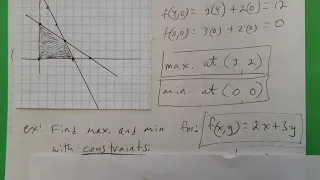 f(4,0) = 3(4) + 2(0) = 12
f(0,0) = 3(0) + 2(0) = 0
max. at (3, 2)
min. at (0, 0)
ex: Find max. and min for: f(x,y) = 2x + 3y
with constraints